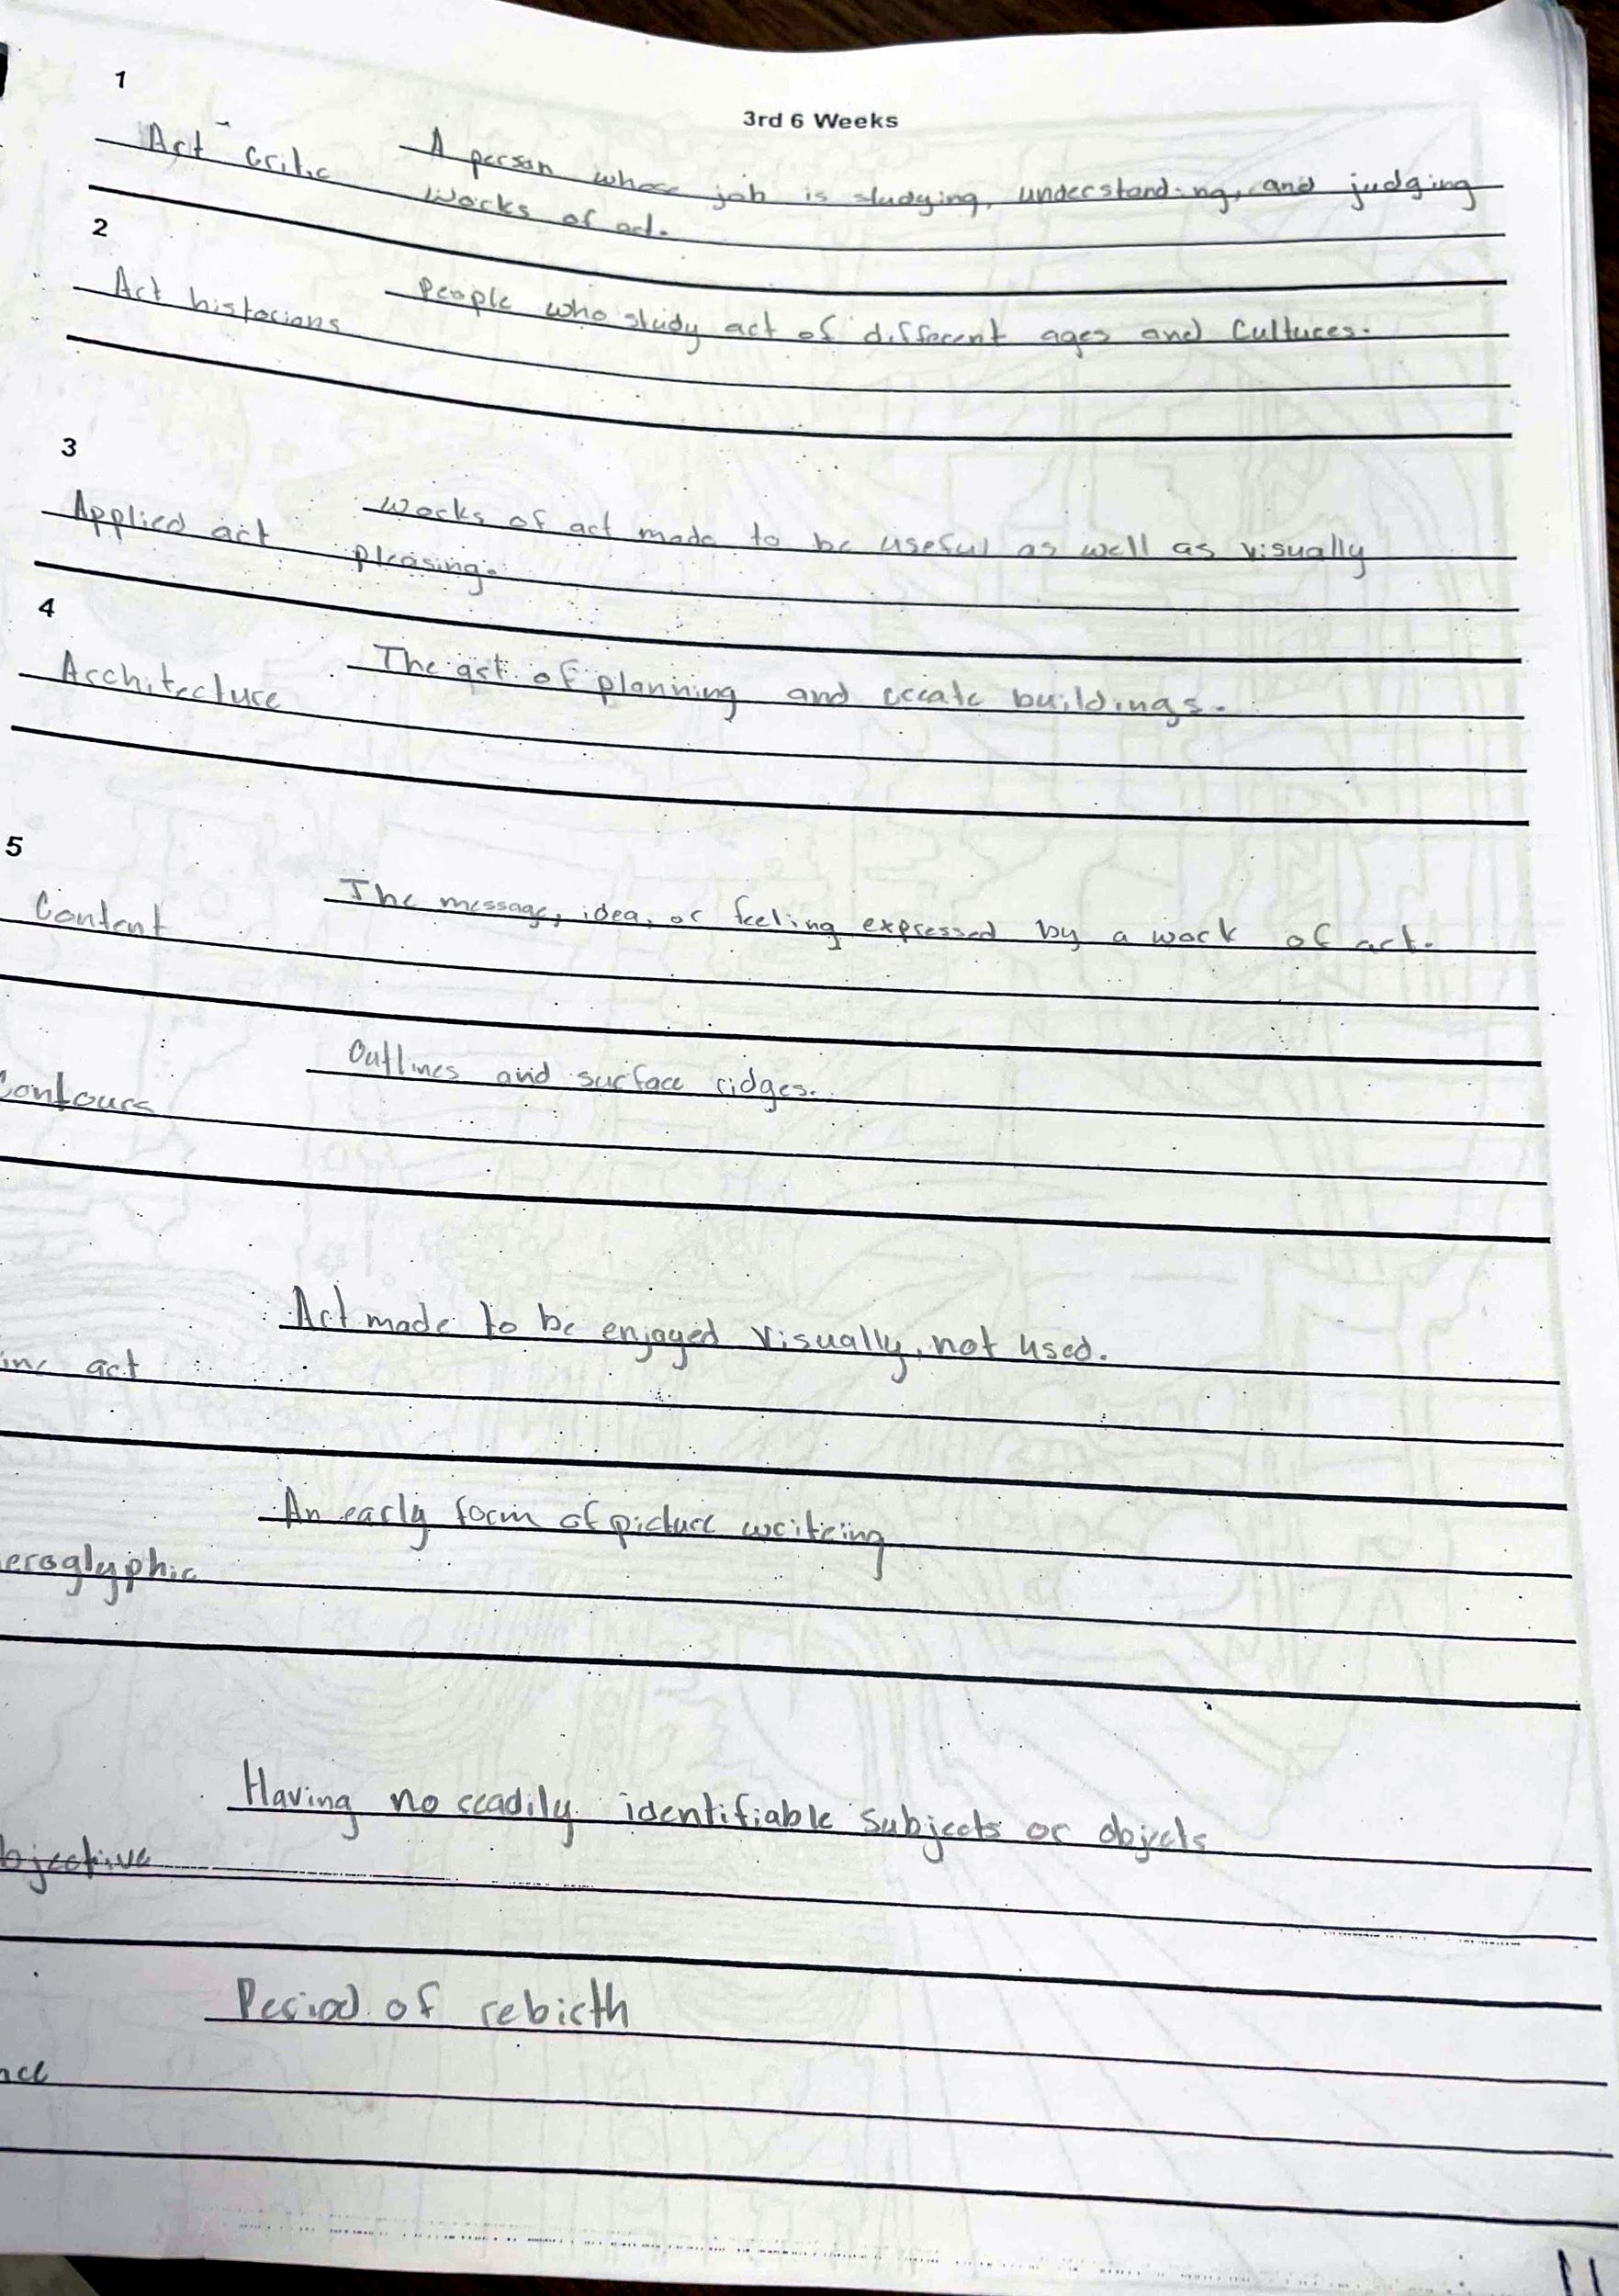 1
3rd 6 Weeks
Art critic A person whose job is studying, understanding, and judging
works of art.
2
Art historians People who study art of different ages and cultures.
3
Applied art works of art made to be useful as well as visually
pleasing.
4
Architecture The art of planning and create buildings.
5
Content The message, idea, or feeling expressed by a work of art.
Contours Outlines and surface ridges.
Art made to be enjoyed visually, not used.
ine art
An early form of picture writeing
eroglyphic
Having no readily identifiable subjects or objects
bjective
Period of rebirth
nce